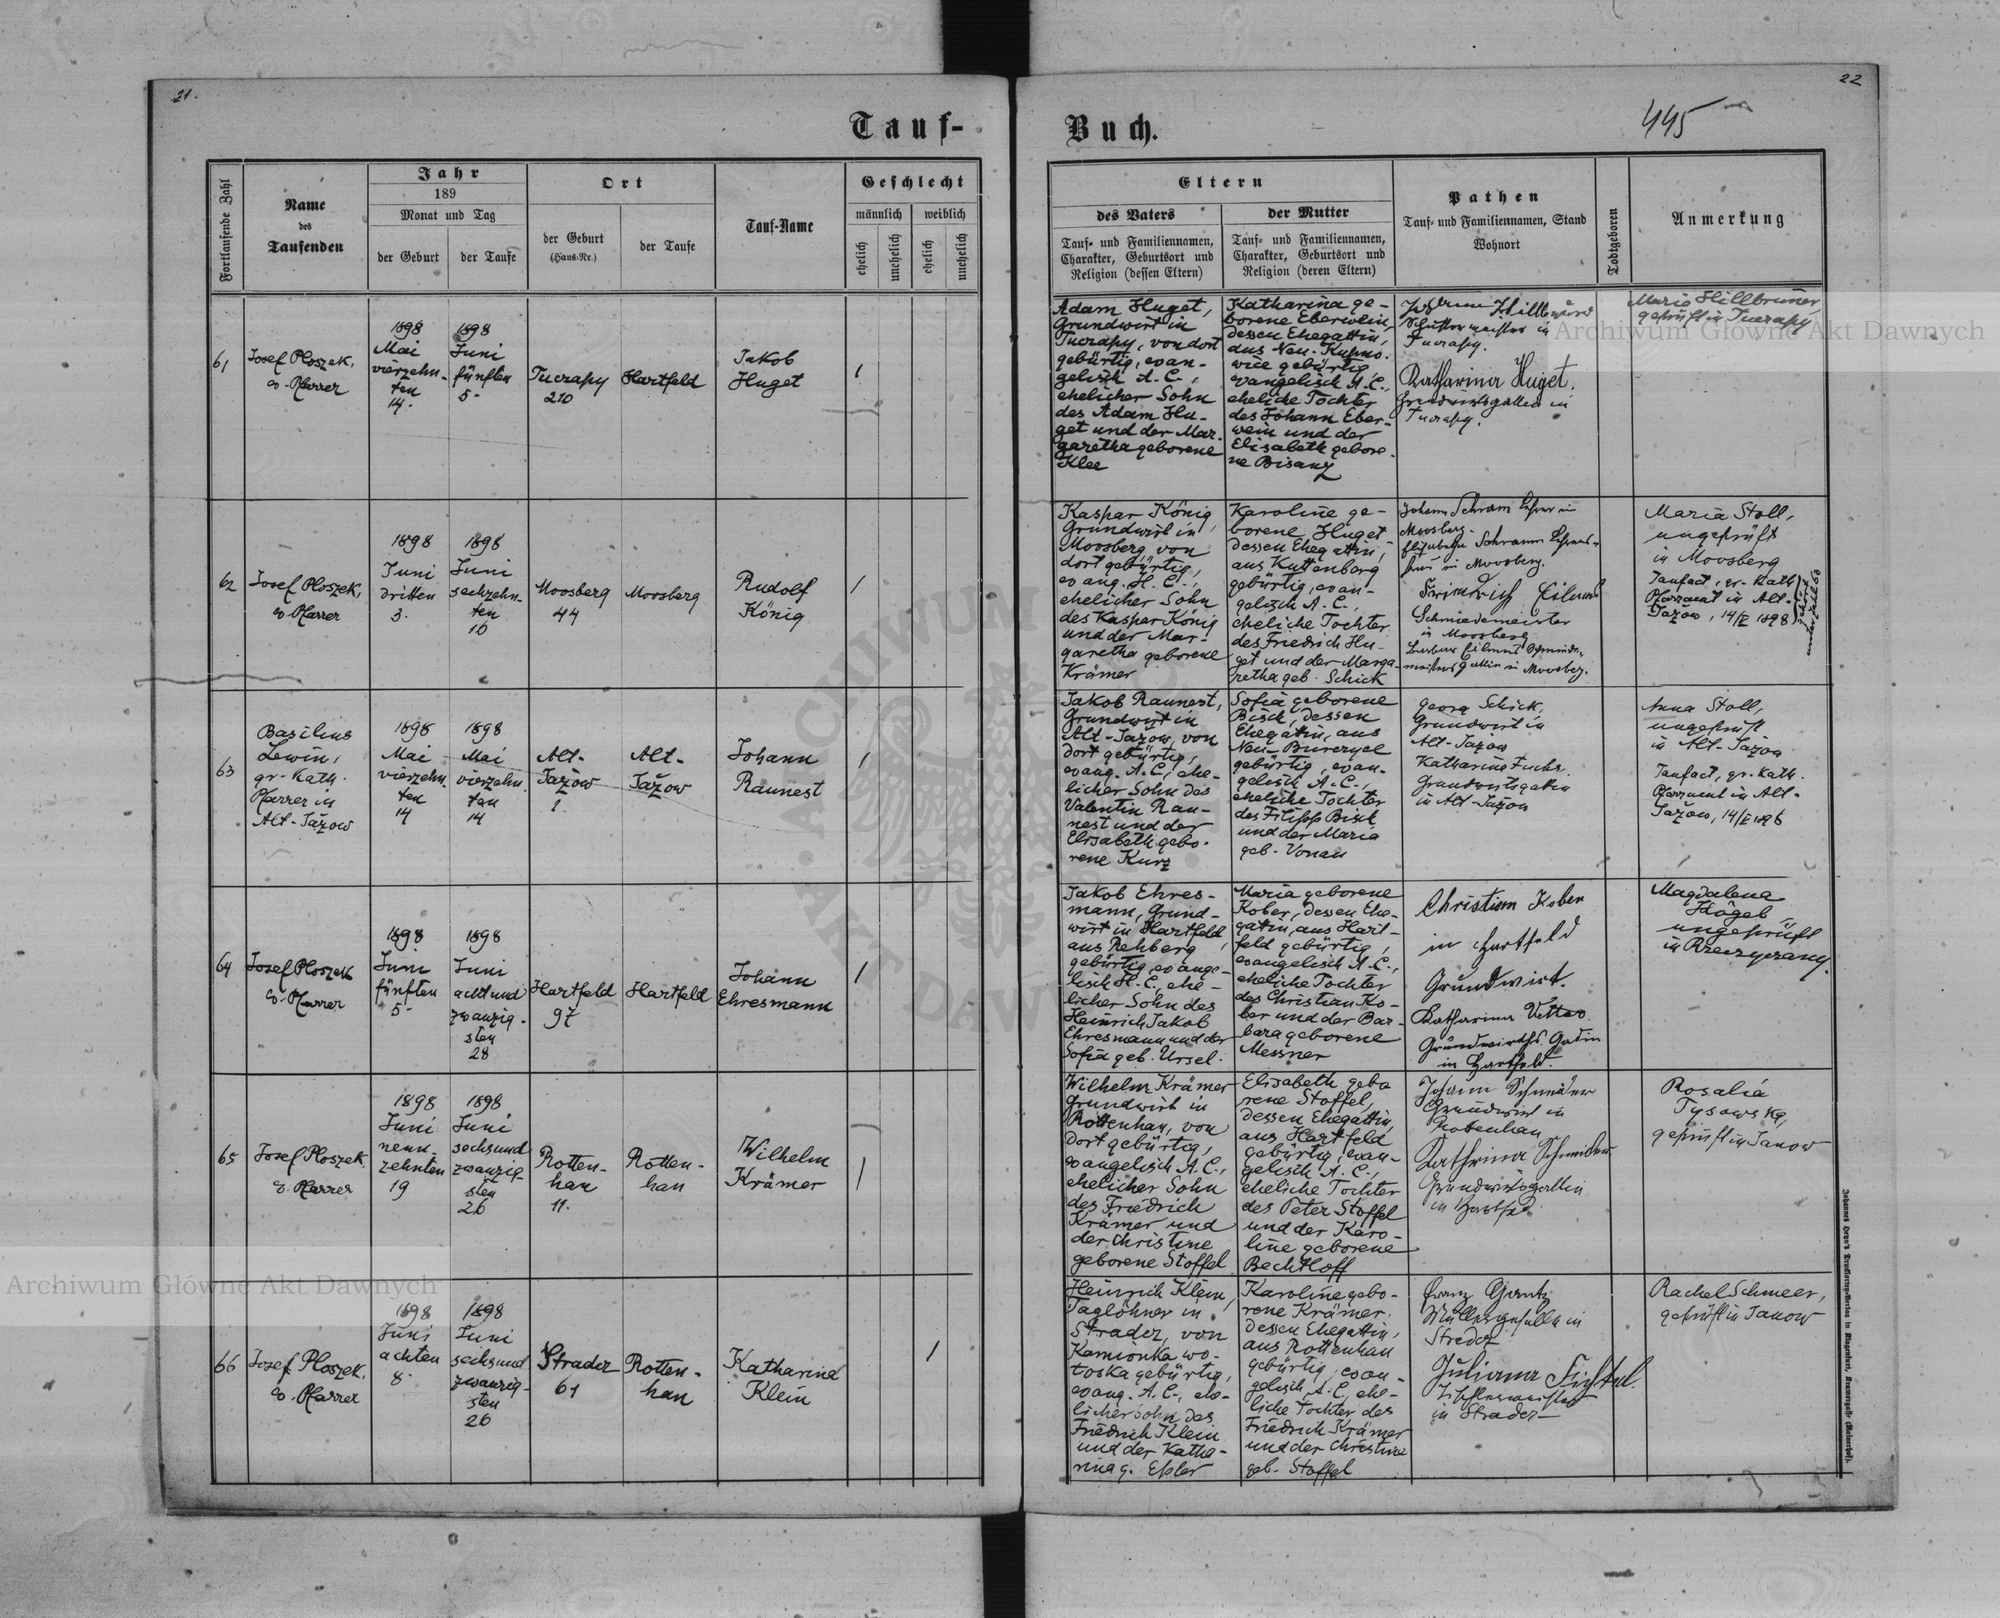 21.
22
Tauf-
Buch.
445
Fortlaufende Zahl
Name
des
Taufenden
Jahr
189
Monat und Tag
der Geburt
der Taufe
Ort
der Geburt
(Haus-Nr.)
der Taufe
Tauf-Name
Geschlecht
männlich
weiblich
ehelich
unehelich
ehelich
unehelich
Eltern
des Vaters
Tauf- und Familiennamen,
Charakter, Geburtsort und
Religion (dessen Eltern)
der Mutter
Tauf- und Familiennamen,
Charakter, Geburtsort und
Religion (deren Eltern)
Pathen
Tauf- und Familiennamen, Stand
Wohnort
Todtgeboren
Anmerkung
61
Josef Ploszek,
ev. Pfarrer
1898
Mai
vierzehn-
ten
14.
1898
Juni
fünften
5.
Tuczapy
210
Hartfeld
Jakob
Huget
1
Adam Huget,
Grundwirt in
Tuczapy, von dort
gebürtig, evan-
gelisch A. C.,
ehelicher Sohn
des Adam Hu-
get und der Mar-
garetha geborene
Klee
Katharina ge-
borene Eberwein,
dessen Ehegattin,
aus Neu-Kupno-
wice gebürtig,
evangelisch A. C.,
eheliche Tochter
des Johann Eber-
wein und der
Elisabeth gebore-
ne Bisanz
in
Tuczapy.
Katharina Huget.
Grundwirtsgattin in
Tuczapy.
Maria Hillbruner
geprüft in Tuczapy
62
Josef Ploszek,
ev. Pfarrer
1898
Juni
dritten
3.
1898
Juni
sechzehn-
ten
16
Moosberg
44
Moosberg
Rudolf
König
1
Kaspar König,
Grundwirt in
Moosberg von
dort gebürtig,
evang. H. C.,
ehelicher Sohn
des Kaspar König
und der Mar-
garetha geborene
Krämer
Karoline ge-
borene Huget
dessen Ehegattin,
aus Kuttenberg
gebürtig, evan-
gelisch A. C.,
eheliche Tochter
des Friedrich Hu-
get und der Marga-
retha geb. Schick
Johann Schram Lehrer in
Moosberg.
Elisabetha Schramm Lehrers-
frau in Moosberg.
Friedrich
Schmiedemeister
in Moosberg
Barbara
gattin in Moosberg.
Maria Stoll,
ungeprüft
in Moosberg
Taufact, gr. Kath.
Pfarramt in Alt-
Jażów, 14/V 1898
gehört
unter Zahl 63
63
Basilius
Lewin,
gr. Kath.
Pfarrer in
Alt-Jażow
1898
Mai
vierzehn-
ten
14
1898
Mai
vierzehn-
ten
14
Alt-
Jażow
1
Alt-
Jażow
Johann
Raunest
1
Jakob Raunest,
Grundwirt in
Alt-Jazow, von
dort gebürtig,
evang. A. C., ehe-
licher Sohn des
Valentin Rau-
nest und der
Elisabeth gebo-
rene Kurz
Sofia geborene
Bisch, dessen
Ehegatin, aus
Neu-Burczyce
gebürtig, evan-
gelisch A. C.,
eheliche Tochter
des Filipp Bisch
und der Maria
geb. Vonau
Georg Schick,
Grundwirt in
Alt-Jazow
Katharina Fuchs.
Grundwirtsgatin
in Alt-Jazow
Anna Stoll,
ungeprüft
in Alt-Jażow
Taufact, gr. Kath.
Pfarramt in Alt-
Jażow, 14/V 1898
64
Josef Ploszek
ev. Pfarrer
1898
Juni
fünften
5.
1898
Juni
acht und
zwanzig-
sten
28
Hartfeld
97
Hartfeld
Johann
Ehresmann
1
Jakob Ehres-
mann, Grund-
wirt in Hartfeld,
aus Rehberg
gebürtig, evange-
lisch H. C., ehe-
licher Sohn des
Heinrich Jakob
Ehresmann und der
Sofia geb. Ursel.
Maria geborene
Kober, dessen Ehe-
gatin, aus Hart-
feld gebürtig,
evangelisch A. C.,
eheliche Tochter
des Christian Ko-
ber und der Bar-
bara geborene
Messner
Christian Kober
in Hartfeld
Grundwirt.
Katharina Vetter
Grundwirths Gatin
in Hartfeld.
Magdalena
Högel
ungeprüft
in Rzeczyczany.
65
Josef Ploszek
ev. Pfarrer
1898
Juni
neun-
zehnten
19
1898
Juni
sechsund
zwanzig-
sten
26
Rotten-
han
11.
Rotten-
han
Wilhelm
Krämer
1
Wilhelm Krämer
Grundwirt in
Rottenhan, von
dort gebürtig,
evangelisch A. C.,
ehelicher Sohn
des Friedrich
Krämer und
der Christine
geborene Stoffel
Elisabeth gebo
rene Stoffel,
dessen Ehegattin,
aus Hartfeld
gebürtig, evan-
gelisch A. C.,
eheliche Tochter
des Peter Stoffel
und der Karo-
line geborene
Bechtloff
Johann Schneider
Grundwirt in
Rotenhan
Kathrina Schneider
Grundwirtsgattin
in
Rosalia
Tysowska,
geprüft in Janow
66
Josef Ploszek,
ev. Pfarrer
1898
Juni
achten
8.
1898
Juni
sechsund
zwanzig-
sten
26
Stradcz
61
Rotten-
han
Katharina
Klein
1
Heinrich Klein,
Taglöhner in
Stradcz, von
Kamionka wo-
loska gebürtig,
evang. A. C., ehe-
licher Sohn des
Friedrich Klein
und der Katha-
rina g. Eßler
Karoline gebo-
rene Krämer,
dessen Ehegattin,
aus Rottenhan
gebürtig, evan-
gelisch A. C., ehe-
liche Tochter des
Friedrich Krämer
und der Christine
geb. Stoffel
Franz Gantz
Müllergeselle in
Stradcz
Juliana Fichtel.
in Stradcz
Rachel Schmeer,
geprüft in Janow
Archiwum Główne Akt Dawnych
Archiwum Główne Akt Dawnych
ARCHIWUM
AKT DAWNYCH